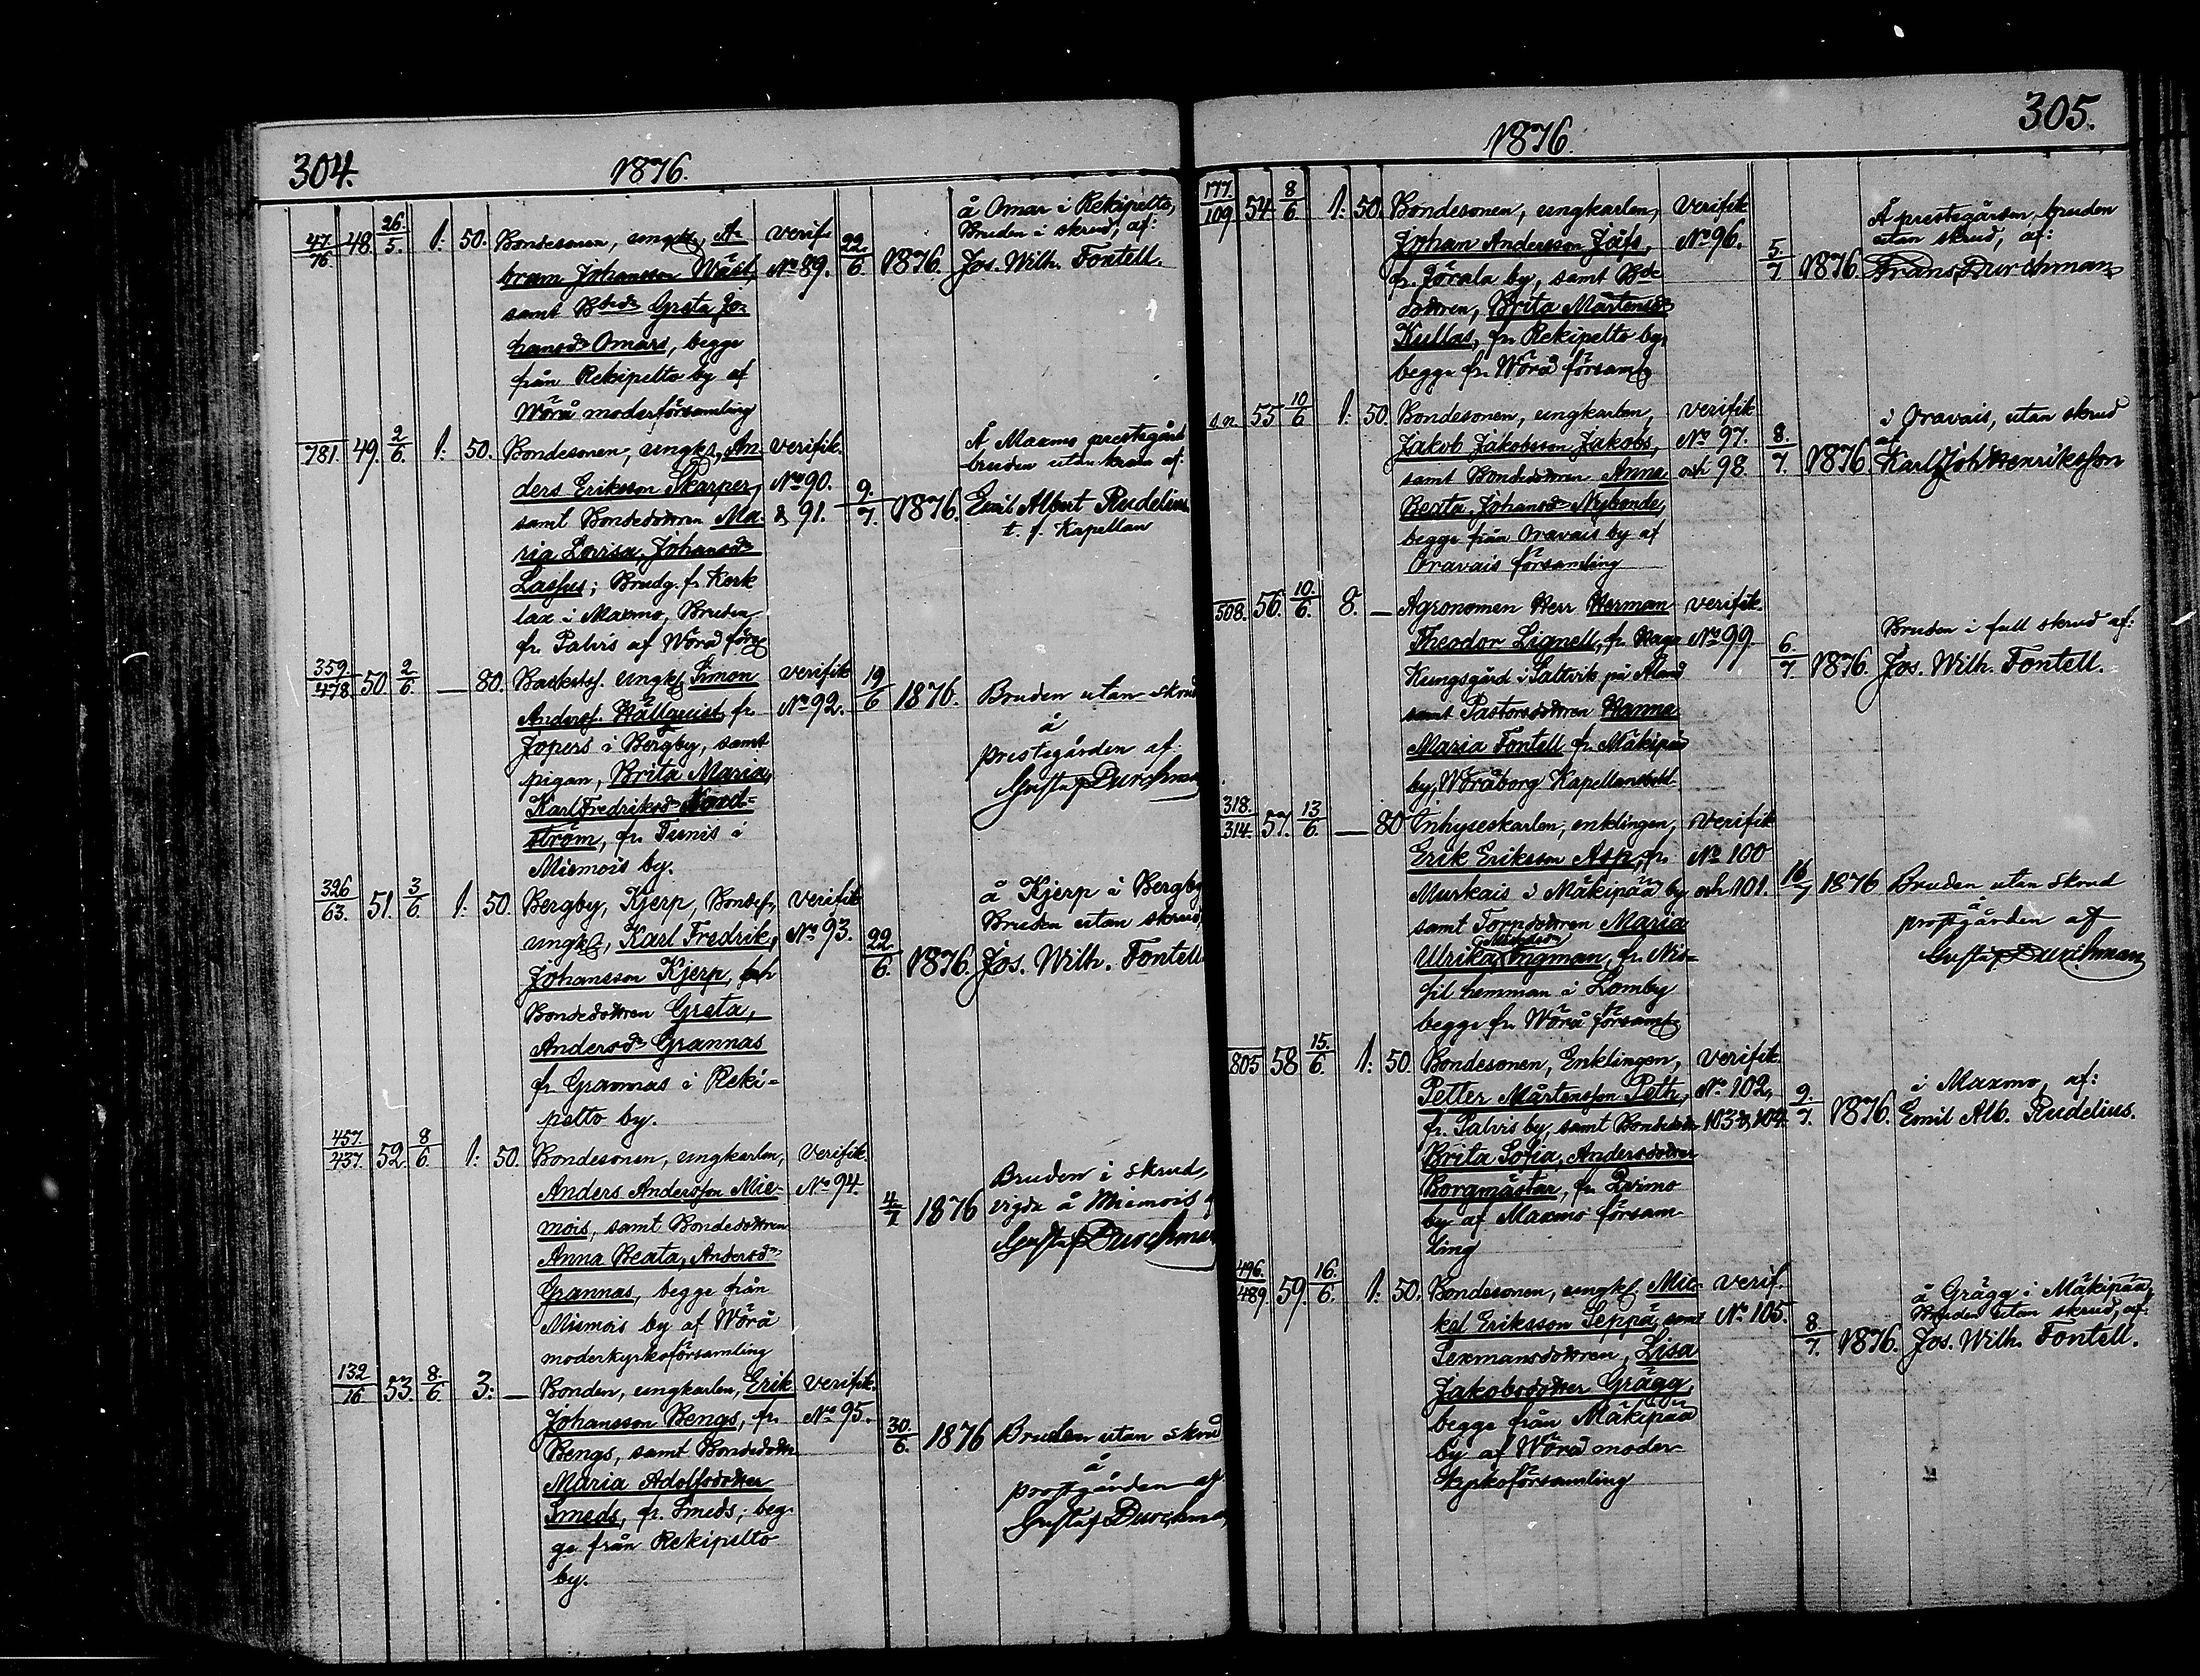 304.
1876.
47/76 48. 26./5. 1: 50. Bondesonen, ungk., A- Verif. 22./6. 1876. å Omar i Rekipelto,
bram Johansson Wäst, No 89. Bruden i skrud, af:
samt Bdedr Greta Jo- Jos. Wilh. Fontell.
hansdr Omars, begge
från Rekipelto by af
Wörå moderförsamling
781. 49. 2/6. 1: 50. Bondesonen, ungk., An- Verifik. 9./7. 1876. Å Maxmo prestegård
ders Eriksson Skarper, No 90. bruden utan kram af:
samt Bondedottren Ma- & 91. Emil Albert Rudelius
ria Lovisa Johansdr t. f. Kapellan
Lassus; Brudg. fr. Kerk
lax i Maxmo, Bruden
fr. Palvis af Wörå förs.
359./478 50 2/6. — 80. Backstuf. ungk. Simon Verifik 19/6 1876. Bruden utan skrud
Anderss. Hällquist, fr. No 92. å
Jopers i Bergby, samt prestegården af:
pigan, Brita Maria, Gustaf Durchman
Karl Fredriksdr Nord-
ström, fr. Tunis i
Miemois by.
326/63. 51. 3/6. 1: 50. Bergby, Kjerp, Bondes., Verifik 22./6. 1876. å Kjerp i Bergby
ungk., Karl Fredrik, No 93. Bruden utan skrud,
Johansson Kjerp, och Jos. Wilh. Fontell
Bondedottren Greta,
Andersdr Grannas
fr. Grannas i Reki-
pelto by.
457./437. 52. 8/6. 1: 50. Bondesonen, ungkarlen, Verifik. 4/7 1876 Bruden i skrud,
Anders Andersson Mie- No 94. vigde å Miemois af
mois, samt Bondedottren Gustaf Durchman
Anna Beata, Andersdr
Grannas, begge från
Miemois by af Wörå
moderkyrkoförsamling
132/16 53. 8./6. 3: — Bonden, ungkarlen, Erik Verifik. 30./6. 1876 Bruden utan skrud
Johansson Bengs, fr. No 95. å
Bengs, samt Bondedottr prostgården af
Maria Adolfsdotter Gustaf Durchman
Smeds, fr. Smeds; beg-
ge från Rekipelto
by.
305.
1876.
177./109 54. 8/6 1: 50. Bondesonen, ungkarlen, Verifik 5/7 1876. Å prestegården, bruden
Johan Andersson Jåfs, No 96. utan skrud, af:
fr. Jörala by, samt Bde Frans Durchman
dottren, Brita Mårtensdr
Kullas, fr. Rekipelto by,
begge fr. Wörå församlg
55 10/6 1: 50. Bondesonen, ungkarlen, Verifik 8./7. 1876 i Oravais, utan skrud
Jakob Jakobsson Jakobs, No 97. af
samt Bondedottren Anna och 98. Karl Joh Henriksson
Beata, Johansdr Nybonde,
begge från Oravais by af
Oravais församling
508. 56. 10./6. 8. — Agronomen Herr Herman Verifik. 6./7. 1876. Bruden i full skrud af:
Theodor Lignell, fr. Haga No 99. Jos. Wilh. Fontell.
Kungsgård i Saltvik på Åland
samt Pastorsdottren Hanna
Maria Fontell fr. Mäkipää
by, Wöråborg Kapellansbol.
318./314. 57. 13/6. — 80 Inhyseskarlen, enklingen, Verifik 16/7 1876 Bruden utan skrud
Erik Eriksson Asp, fr. No 100 å
Murkais i Mäkipää by och 101. prostgården af
samt Torpdottren Maria Gustaf Durchman
Ulrika Ingman, fr. Nis-
sil hemman i Lomby
begge fr. Wörå församlg
805 58 15./6. 1: 50. Bondesonen, Enklingen, Verifik. 9./7. 1876. i Maxmo, af:
Petter Mårtensson Peth, No 102, Emil Alb. Rudelius.
fr. Palvis by, samt Bondedottr 103 & 104.
Brita Sofia, Andersdotter
Borgmästar, fr. Qvimo
by af Maxmo försam-
ling
496./489. 59. 16./6. 1: 50. Bondesonen, ungk. Mic- Verif. 8./7. 1876. å Grägg i Mäkipää,
kel Eriksson Seppä, samt No 105. Bruden utan skrud, af:
Sexmansdottren, Lisa Jos. Wilh. Fontell.
Jakobsdotter Grägg,
begge från Mäkipää
by af Wörå moder-
kyrkoförsamling